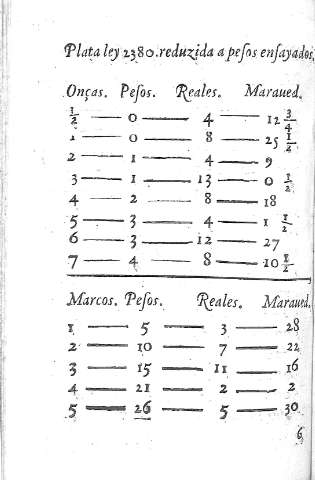 Plata ley 2380. reduzida a pesos ensayados.
Onças. Pesos. Reales. Maraued.
½ — 0 — 4 — 12 ¾
1 — 0 — 8 — 25 ½
2 — 1 — 4 — 9
3 — 1 — 13 — 0 ½
4 — 2 — 8 — 18
5 — 3 — 4 — 1 ½
6 — 3 — 12 — 27
7 — 4 — 8 — 10 ½
Marcos. Pesos. Reales. Maraued.
1 — 5 — 3 — 28
2 — 10 — 7 — 22
3 — 15 — 11 — 16
4 — 21 — 2 — 2
5 — 26 — 5 — 30
6